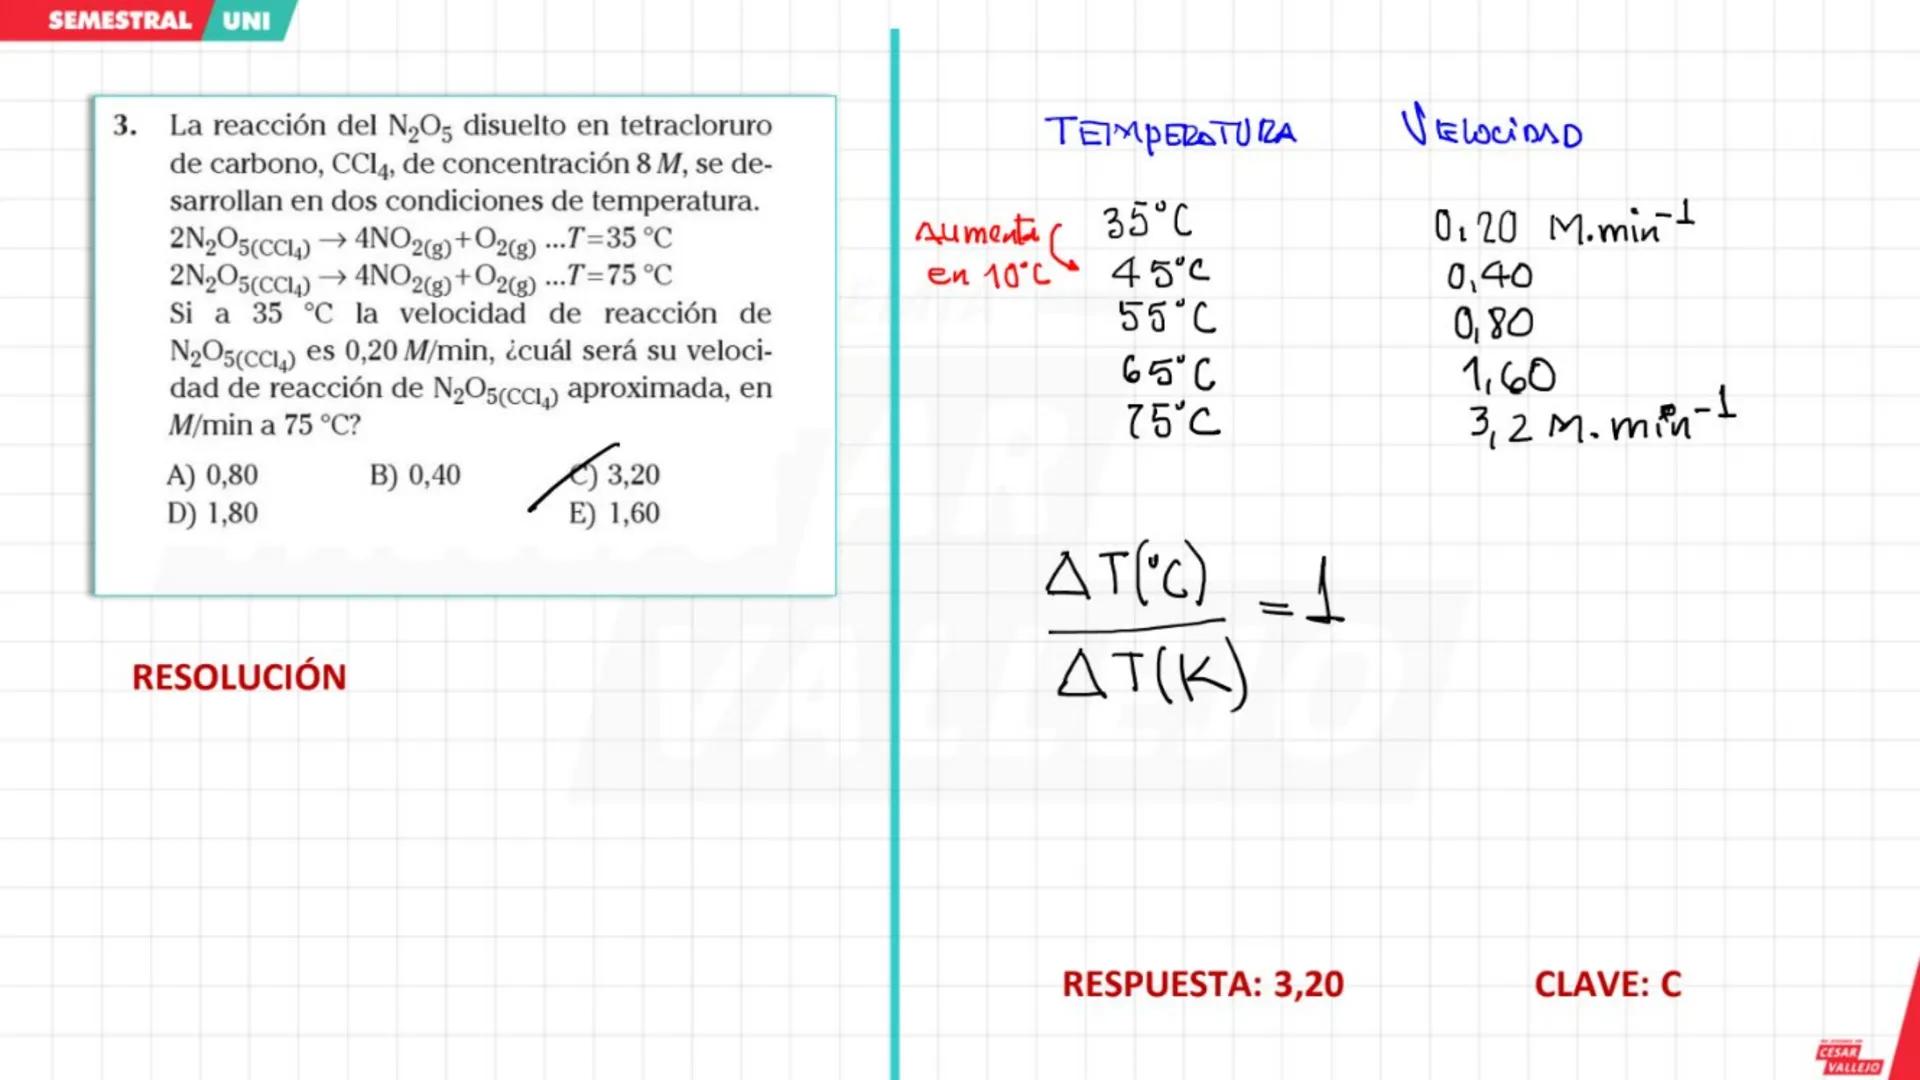 SEMESTRAL UNI
3. La reacción del N₂O₅ disuelto en tetracloruro
de carbono, CCl₄, de concentración 8 M, se de-
sarrollan en dos condiciones de temperatura.
2N₂O₅(CCl₄) → 4NO₂(g)+O₂(g) ...T=35 °C
2N₂O₅(CCl₄) → 4NO₂(g)+O₂(g) ...T=75 °C
Si a 35 °C la velocidad de reacción de
N₂O₅(CCl₄) es 0,20 M/min, ¿cuál será su veloci-
dad de reacción de N₂O₅(CCl₄) aproximada, en
M/min a 75 °C?
A) 0,80 B) 0,40 C) 3,20
D) 1,80 E) 1,60
RESOLUCIÓN
TEMPERATURA VELOCIDAD
35°C 0,20 M.min⁻¹
Aumenta
en 10°C
45°C 0,40
55°C 0,80
65°C 1,60
75°C 3,2 M.min⁻¹
ΔT(°C)
ΔT(K)
= 1
RESPUESTA: 3,20 CLAVE: C
CESAR
VALLEJO